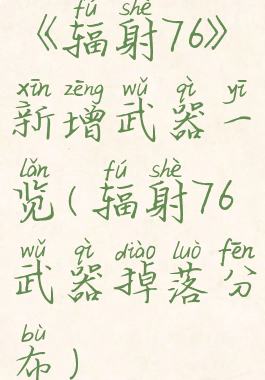 fú shè
《辐射76》
xīn zēng wǔ qì yī
新增武器一
lǎn fú shè
览(辐射76
wǔ qì diào luò fēn
武器掉落分
bù
布)